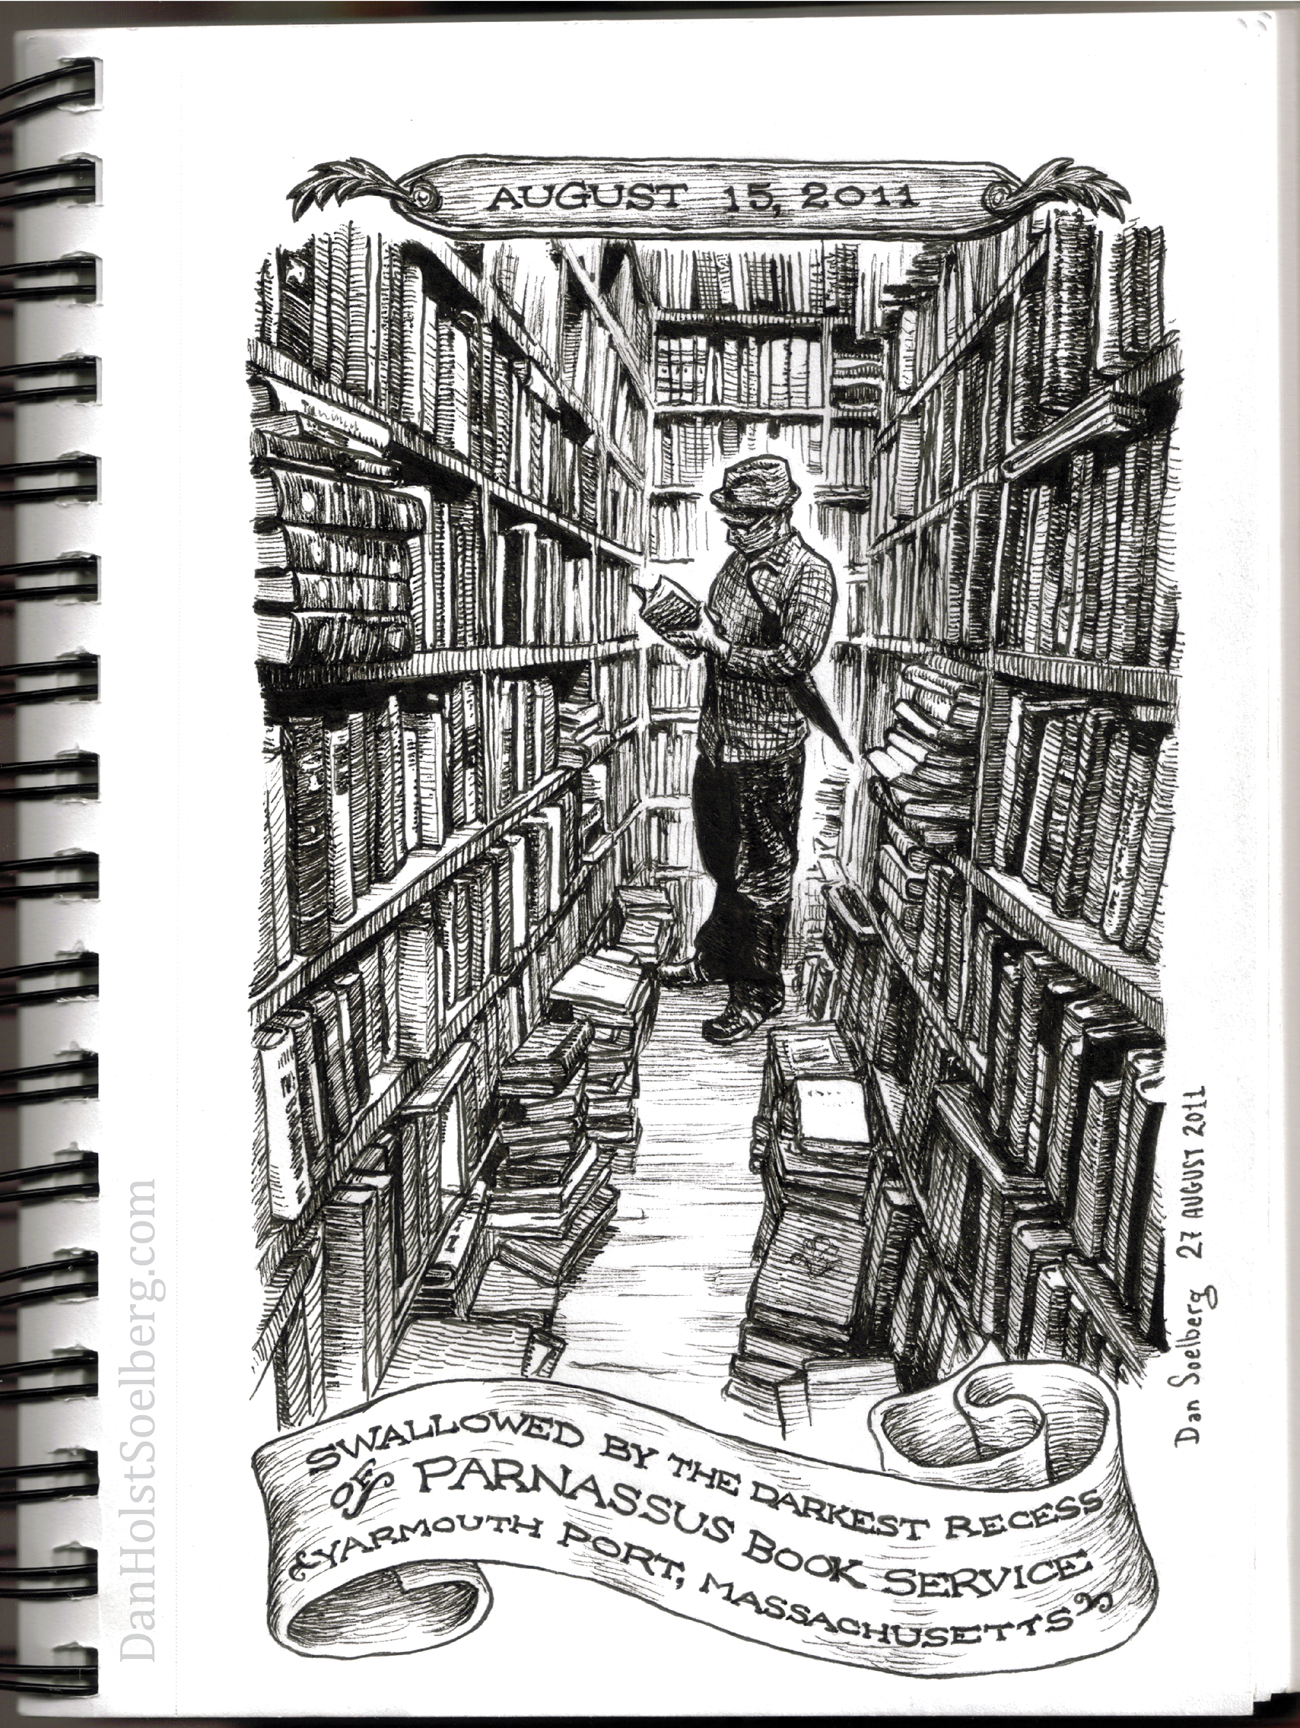 AUGUST 15, 2011
SWALLOWED BY THE DARKEST RECESS
OF PARNASSUS BOOK SERVICE
YARMOUTH PORT, MASSACHUSETTS
Dan Soelberg 27 AUGUST 2011
DanHolstSoelberg.com